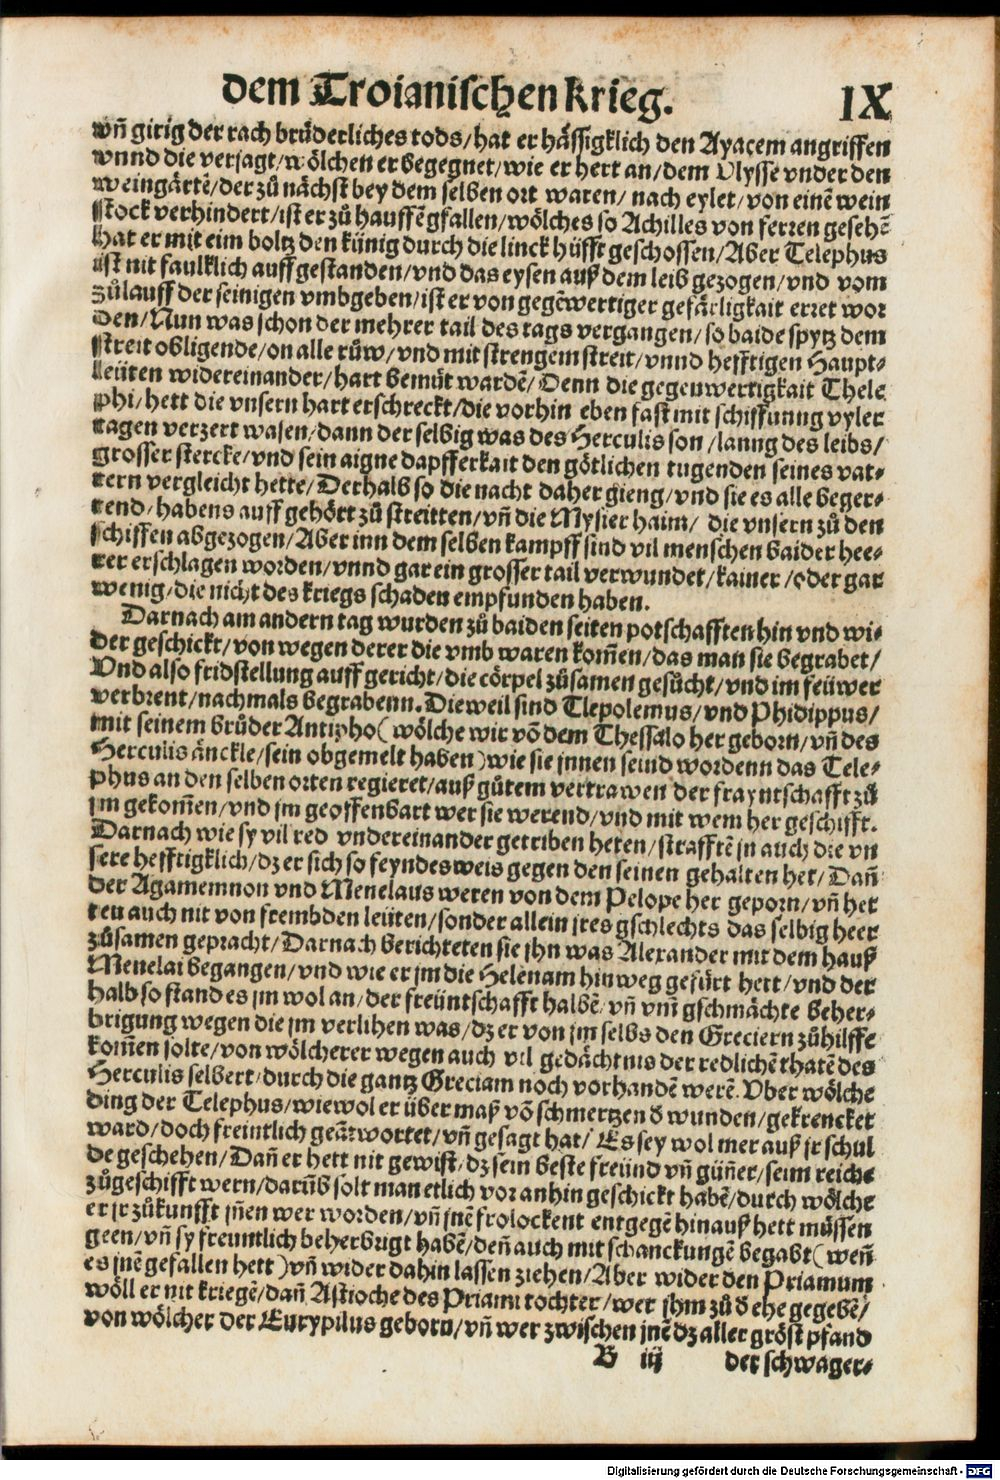 dem Troianischen krieg. IX
vnñ girig der rach brůderliches tods/hat er hässigklich den Ayacem angriffen
vnnd die verjagt/wölchen er begegnet/wie er hert an/dem Ulysse vnder den
weingärtē/der zů nächst bey dem selben ort waren/ nach eylet/von einē wein
stock verhindert/ist er zů hauffē gfallen/wölches so Achilles von ferren gesehē
hat er mit eim boltz den künig durch die linck hüfft geschossen/Aber Telephus
ist nit faulklich auff gestanden/vnd das eysen auß dem leib gezogen/vnd vom
zůlauff der seinigen vmbgeben/ist er von gegēwertiger gefärligkait erret wor
den/Nun was schon der mehrer tail des tags vergangen/so baide spytz dem
streit obligende/on alle růw/vnd mit strengem streit/vnnd hefftigen Haupt-
leüten widereinander/hart bemüt wardē/Denn die gegenwertigkait Thele
phi/hett die vnsern hart erschreckt/die vorhin eben fast mit schiffunng vyler
tagen verzert wasen/dann der selbig was des Herculis son/lanng des leibs/
grosser stercke/vnd sein aigne dapfferkait den götlichen tugenden seines vat-
tern vergleicht hette/Derhalb so die nacht daher gieng/vnd sie es alle beger-
rend/habens auff gehört zů streitten/vñ die Mysier haim/ die vnsern zů den
schiffen abgezogen/Aber inn dem selben kampff sind vil menschen baider hee-
rer erschlagen worden/vnnd gar ein grosser tail verwundet/kainer/oder gar
wenig/die nicht des kriegs schaden empfunden haben.
Darnach am andern tag wurden zů baiden seiten potschafften hin vnd wi-
der geschickt/von wegen derer die vmb waren kom̄en/das man sie begrabet/
Vnd also fridstellung auff gericht/die cörpel zůsamen gesůcht/vnd im feüwer
verbrent/nachmals begrabenn. Dieweil sind Tlepolemus/vnd Phidippus/
mit seinem brůder Antipho(wölche wir vō dem Thessalo her geborn/vñ des
Herculis änckle/sein obgemelt haben)wie sie jnnen seind wordenn das Tele-
phus an den selben orten regieret/auß gůtem vertrawen der frayntschafft zů
jm gekom̄en/vnd jm geoffenbart wer sie werend/vnd mit wem her geschifft.
Darnach wie sy vil red vndereinander getriben heten/strafftē jn auch die vn
sere hefftigklich/dz er sich so feyndes weis gegen den seinen gehalten het/Dañ
der Agamemnon vnd Menelaus weren von dem Pelope her geporn/vñ het
ten auch nit von frembden leüten/sonder allein jres gschlechts das selbig heer
zůsamen gepracht/Darnach berichteten sie jhn was Alexander mit dem hauß
Menelai begangen/vnd wie er jm die Helenam hinweg gefürt hett/vnd der
halb so stand es jm wol an/der freüntschafft halbē/vñ vm̄ gschmächte beher-
brigung wegen die jm verlihen was/dz er von jm selbs den Greciern zůhilffe
kom̄en solte/von wölcherer wegen auch vil gedächtnis der redlichē thatē des
Herculis selbert/durch die gantz Greciam noch vorhandē werē. Vber wölche
ding der Telephus/wiewol er über maß vō schmertzen ð wunden/gekrencket
ward/doch freintlich geätwortet/vñ gesagt hat/ Es sey wol mer auß jr schul
de geschehen/Dañ er hett nit gewist/dz sein beste freünd vñ güñer/seim reiche
zůgeschifft wern/darūb solt man etlich vor anhin geschickt habē/durch wölche
er jr zůkunfft jñen wer worden/vñ jnē frolockent entgegē hinauß hett müssen
geen/vñ sy freuntlich beherbrigt habē/deñ auch mit schanckungē begabt(weñ
es jnē gefallen hett)vñ wider dahin lassen ziehen/Aber wider den Priamum
wöll er nit kriegē/dañ Astioche des Priami tochter/wer jhm zů ð ehe gegebē/
von wölcher der Eurypilus geborn/vñ wer zwischen jnē dz aller gröst pfand
B iij der schwager-
Digitalisierung gefördert durch die Deutsche Forschungsgemeinschaft - DFG